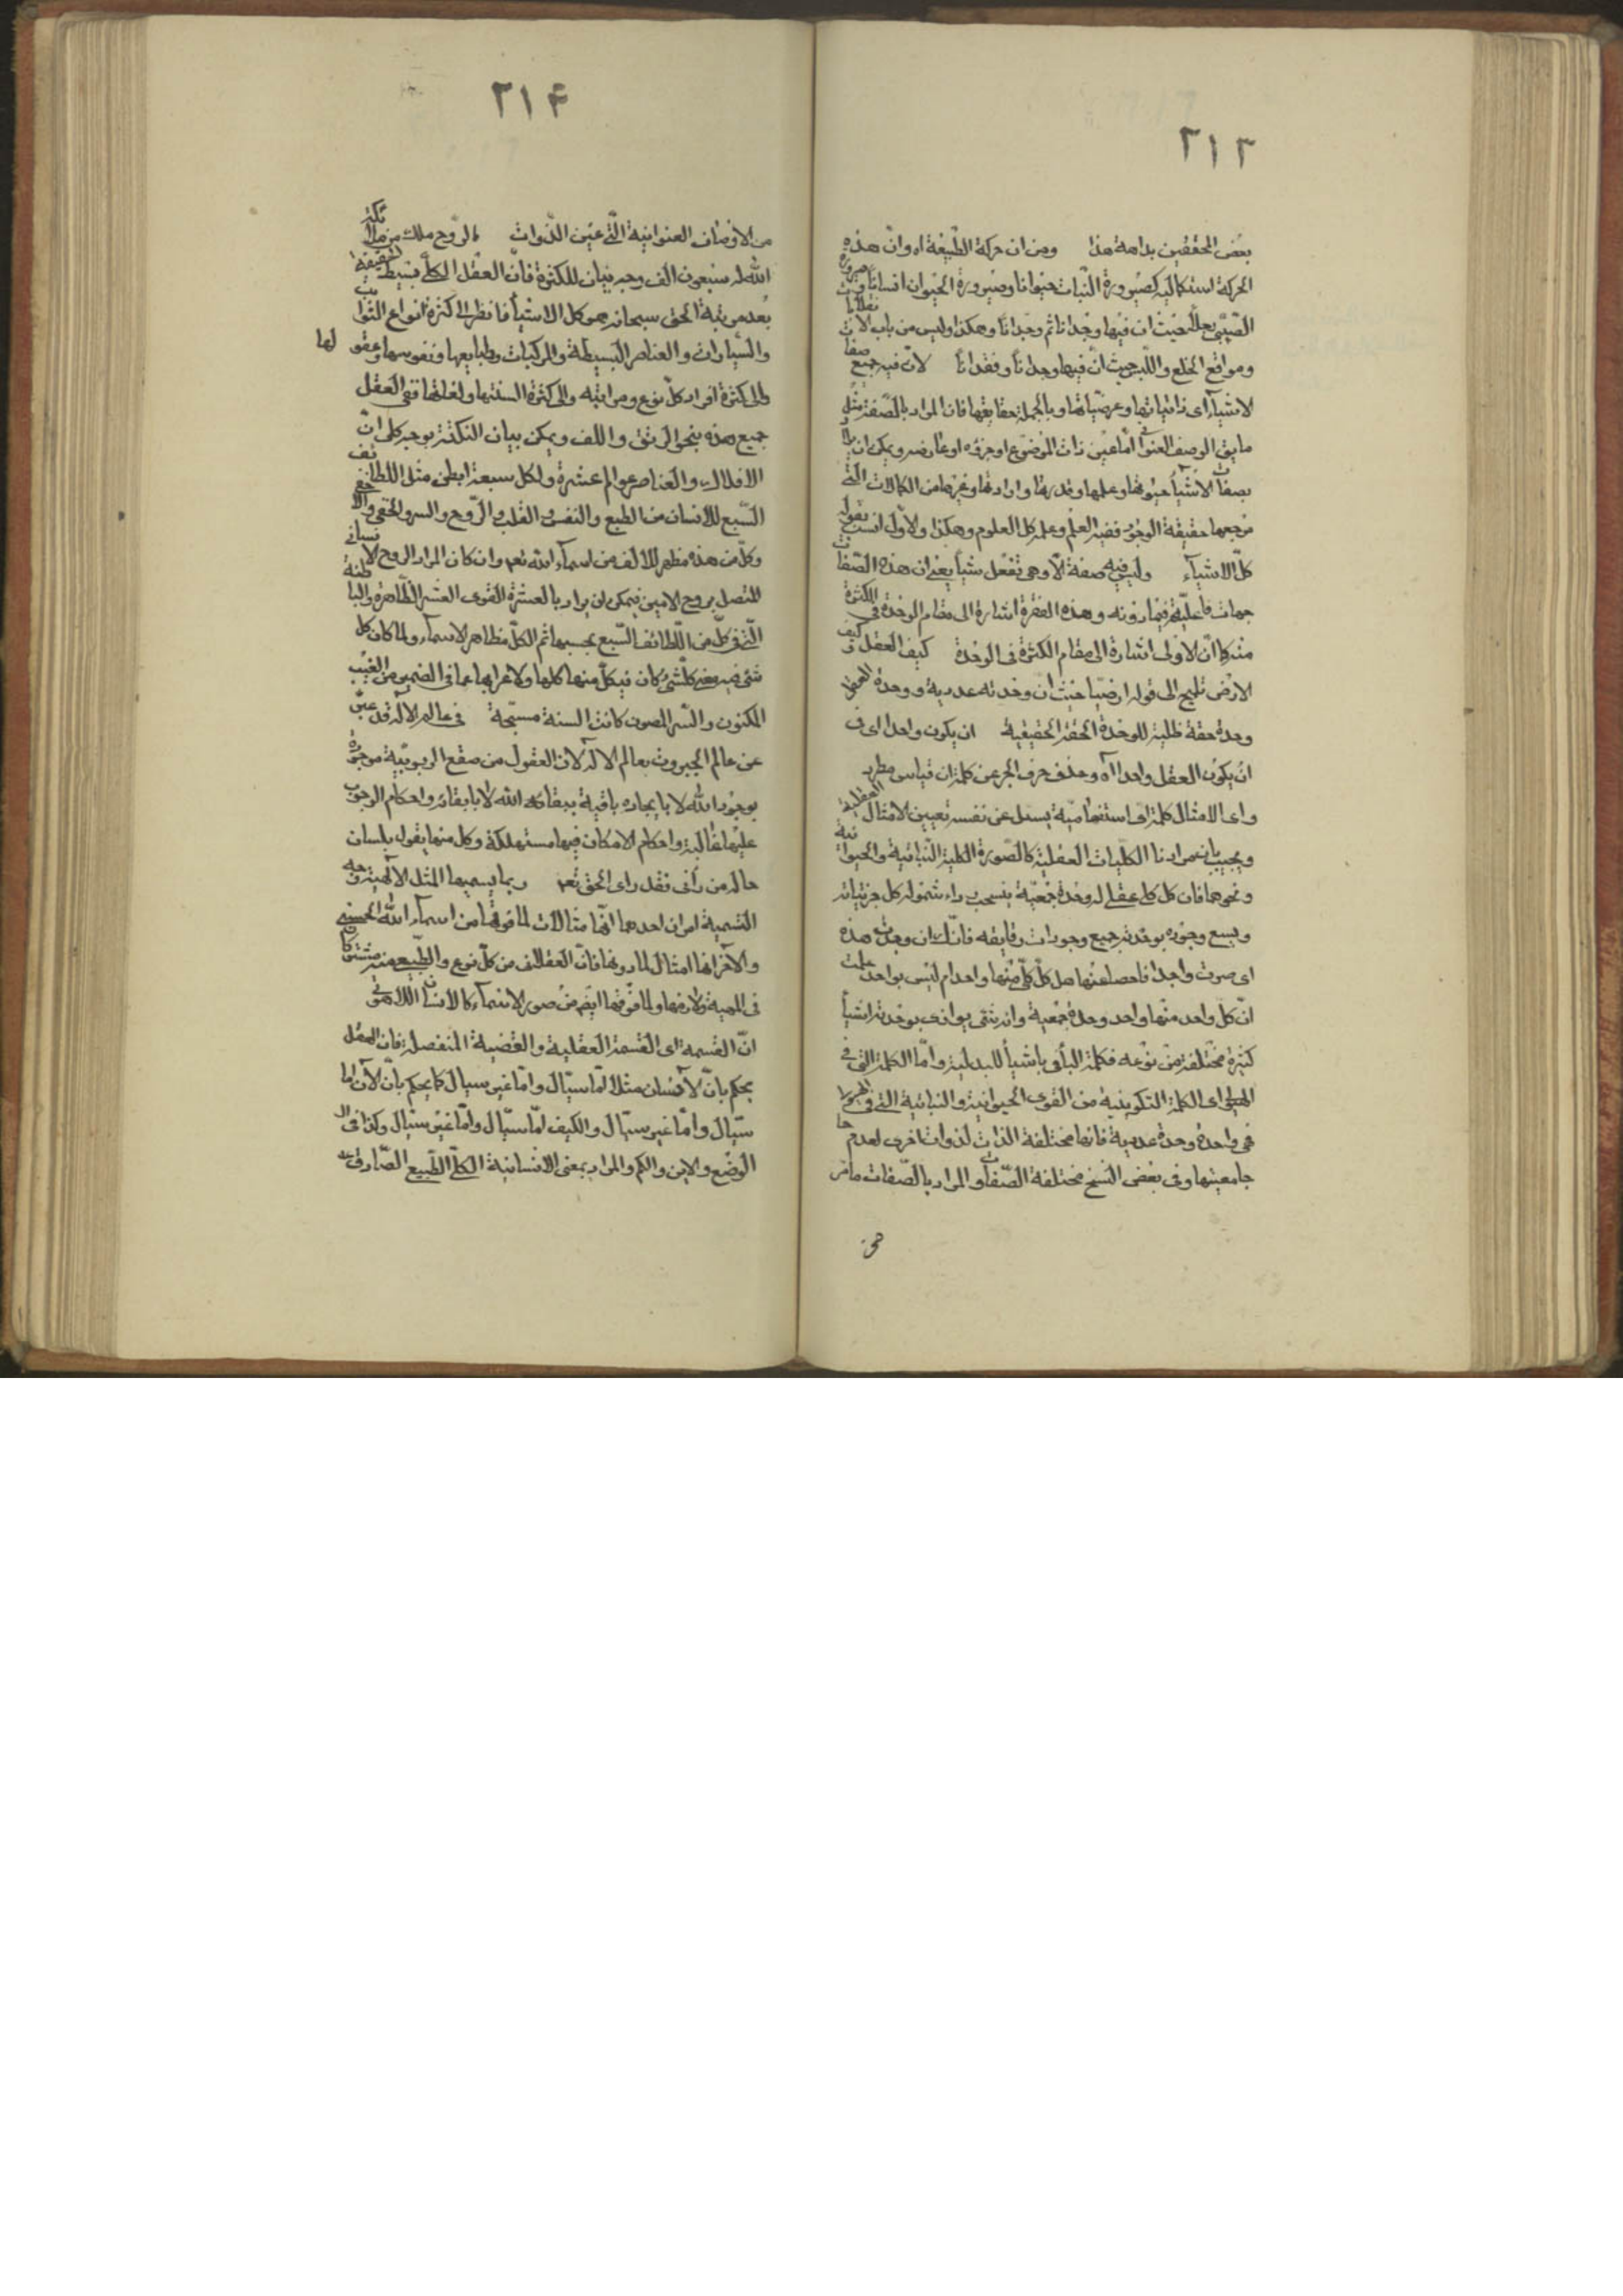 ٢١٣
بعض المحققين بداهة هذا ومن ان حركة الطبيعة اه وان هذه
الحركة استكمالية كصيرورة النبات حيوانا وصيرورة الحيوان انسانا وصيرورة
الصبى رجلا حيث ان فيها وجدانا ثم وجدانا وهكذا وليس من باب الانقلابات
ومواقع الخلع واللبس حيث ان فيها وجدانا وفقدانا لان فيه جميع صفات
الاشياء اى ذاتياتها وعرضياتها وبالجملة حقايقها فان المراد بالصفة مثل
ما يق الوصف العنوانى اما عين ذات الموضوع او جزؤه او عارضه ويمكن ان يراد
بصفات الاشياء حيوتها وعلمها وقدرتها وارادتها وغيرها من الكمالات التى
مرجعها حقيقة الوجود ففيه العلم وعلمه كل العلوم وهكذا والاول انسب بقوله
كل الاشياء وليس فيه صفة الا وهى تفعل شيئا يعنى ان هذه الصفات
جهات فاعلية فيما دونه وهذه الفقرة اشارة الى مقام الوحدة فى الكثرة
منه كما ان الاولى اشارة الى مقام الكثرة فى الوحدة كيف العقل وكيف
الارض تلميح الى قوله ارضيا حيث ان وحدته عددية ووحدة العقل
وحدة حقة ظلية للوحدة الحقة الحقيقية ان يكون واحدا اى فى
ان يكون العقل واحدا اه وحذف حرف الجر عن كلمة ان قياسى مطرد
واى الامثال كلمة اى استفهامية يسئل عن نفسه تعيين الامثال العقلية
ويجيب بان مرادنا الكليات العقلية كالصورة الكلية النباتية والحيوانية
ونحوهما فان كل كلى عقلى له وحدة جمعية ينسحب رداء شموله كل جزئياته
ويسع وجوده بوحدته جميع وجودات رقايقه فانك ان وجدت هذه
اى صرت واجدا فاحصا عنها هل كل كلى منها واحد ام ليس بواحد علمت
ان كل واحد منها واحد وحدة جمعية وانه شئ يوازى بوحدته اشياء
كثيرة مختلفة من نوعه فكلمة الباء فى باشياء للبدلية واما الكلمة التى فى
الهيولى اى الكلمة التكوينية من القوى الحيوانية والنباتية التى فى الهيولى
فهى واحدة وحدة عددية فانها مختلفة الذات لذوات اخرى لعدم
جامعيتها وفى بعض النسخ مختلفة الصفات والمراد بالصفات ما مر
من
٢١۴
من الاوصاف العنوانية التى عين الذوات الروح ملك من ملائكة
الله له سبعون الف وجه بيان للكثرة فان العقل الكلى بسيط الحقيقة
بعد مرتبة الحق سبحانه هو كل الاشياء فانظر الى كثرة انواع الثوابت
والسيارات والعناصر البسيطة والمركبات وطبايعها ونفوسها وعقولها
والى كثرة افراد كل نوع ومراتبه والى كثرة السنتها ولغاتها ففى العقل
جميع هذه بنحو الرتق واللف ويمكن بيان النكتة بوجه كلى ان
الافلاك والعناصر عوالم عشرة ولكل سبعة ابطن مثل اللطائف
السبع للانسان من الطبع والنفس والقلب والروح والسر والخفى والاخفى
وكل من هذه مظهر للالف من اسماء الله تعم وان كان المراد الروح الانسانى
المتصل بروح الامين فيمكن ان يراد بالعشرة القوى العشر الظاهرة والباطنة
التى فى كل من اللطائف السبع بحسبها ثم الكل مظاهر الاسماء ولما كان كل
شئ فيه معنى كل شئ كان فى كل منها كلها ولاعرابها عما فى الضمير من الغيب
المكنون والسر المصون كانت السنة مسبحة فى عالم الاله قد عبر
عن عالم الجبروت بعالم الاله لان العقول من صقع الربوبية موجودة
بوجود الله لا بايجاده باقية ببقاء الله لا بابقائه واحكام الوجوب
عليها غالبة واحكام الامكان فيها مستهلكة وكل منها يقول بلسان
حاله من رآنى فقد راى الحق تعم ربما يسميها المثل الالهية وجه
التسمية امران احدهما انها مثالات لما فوقها من اسماء الله الحسنى
والاخر انها امثال لما دونها فان العقلانى من كل نوع والطبيعى منه مشتركان
فى المهية ولازمها ولما فوقها ايض من صور الاسماء كالانسان اللاهوتى
ان القسمة اى القسمة العقلية والقضية المنفصلة فان العقل
يحكم بان الانسان مثلا اما سيال واما غير سيال كما يحكم بان الان اما
سيال واما غير سيال والكيف اما سيال واما غير سيال وكذا فى
الوضع والاين والكم والمراد بمعنى الانسانية الكلى الطبيعى الصادق